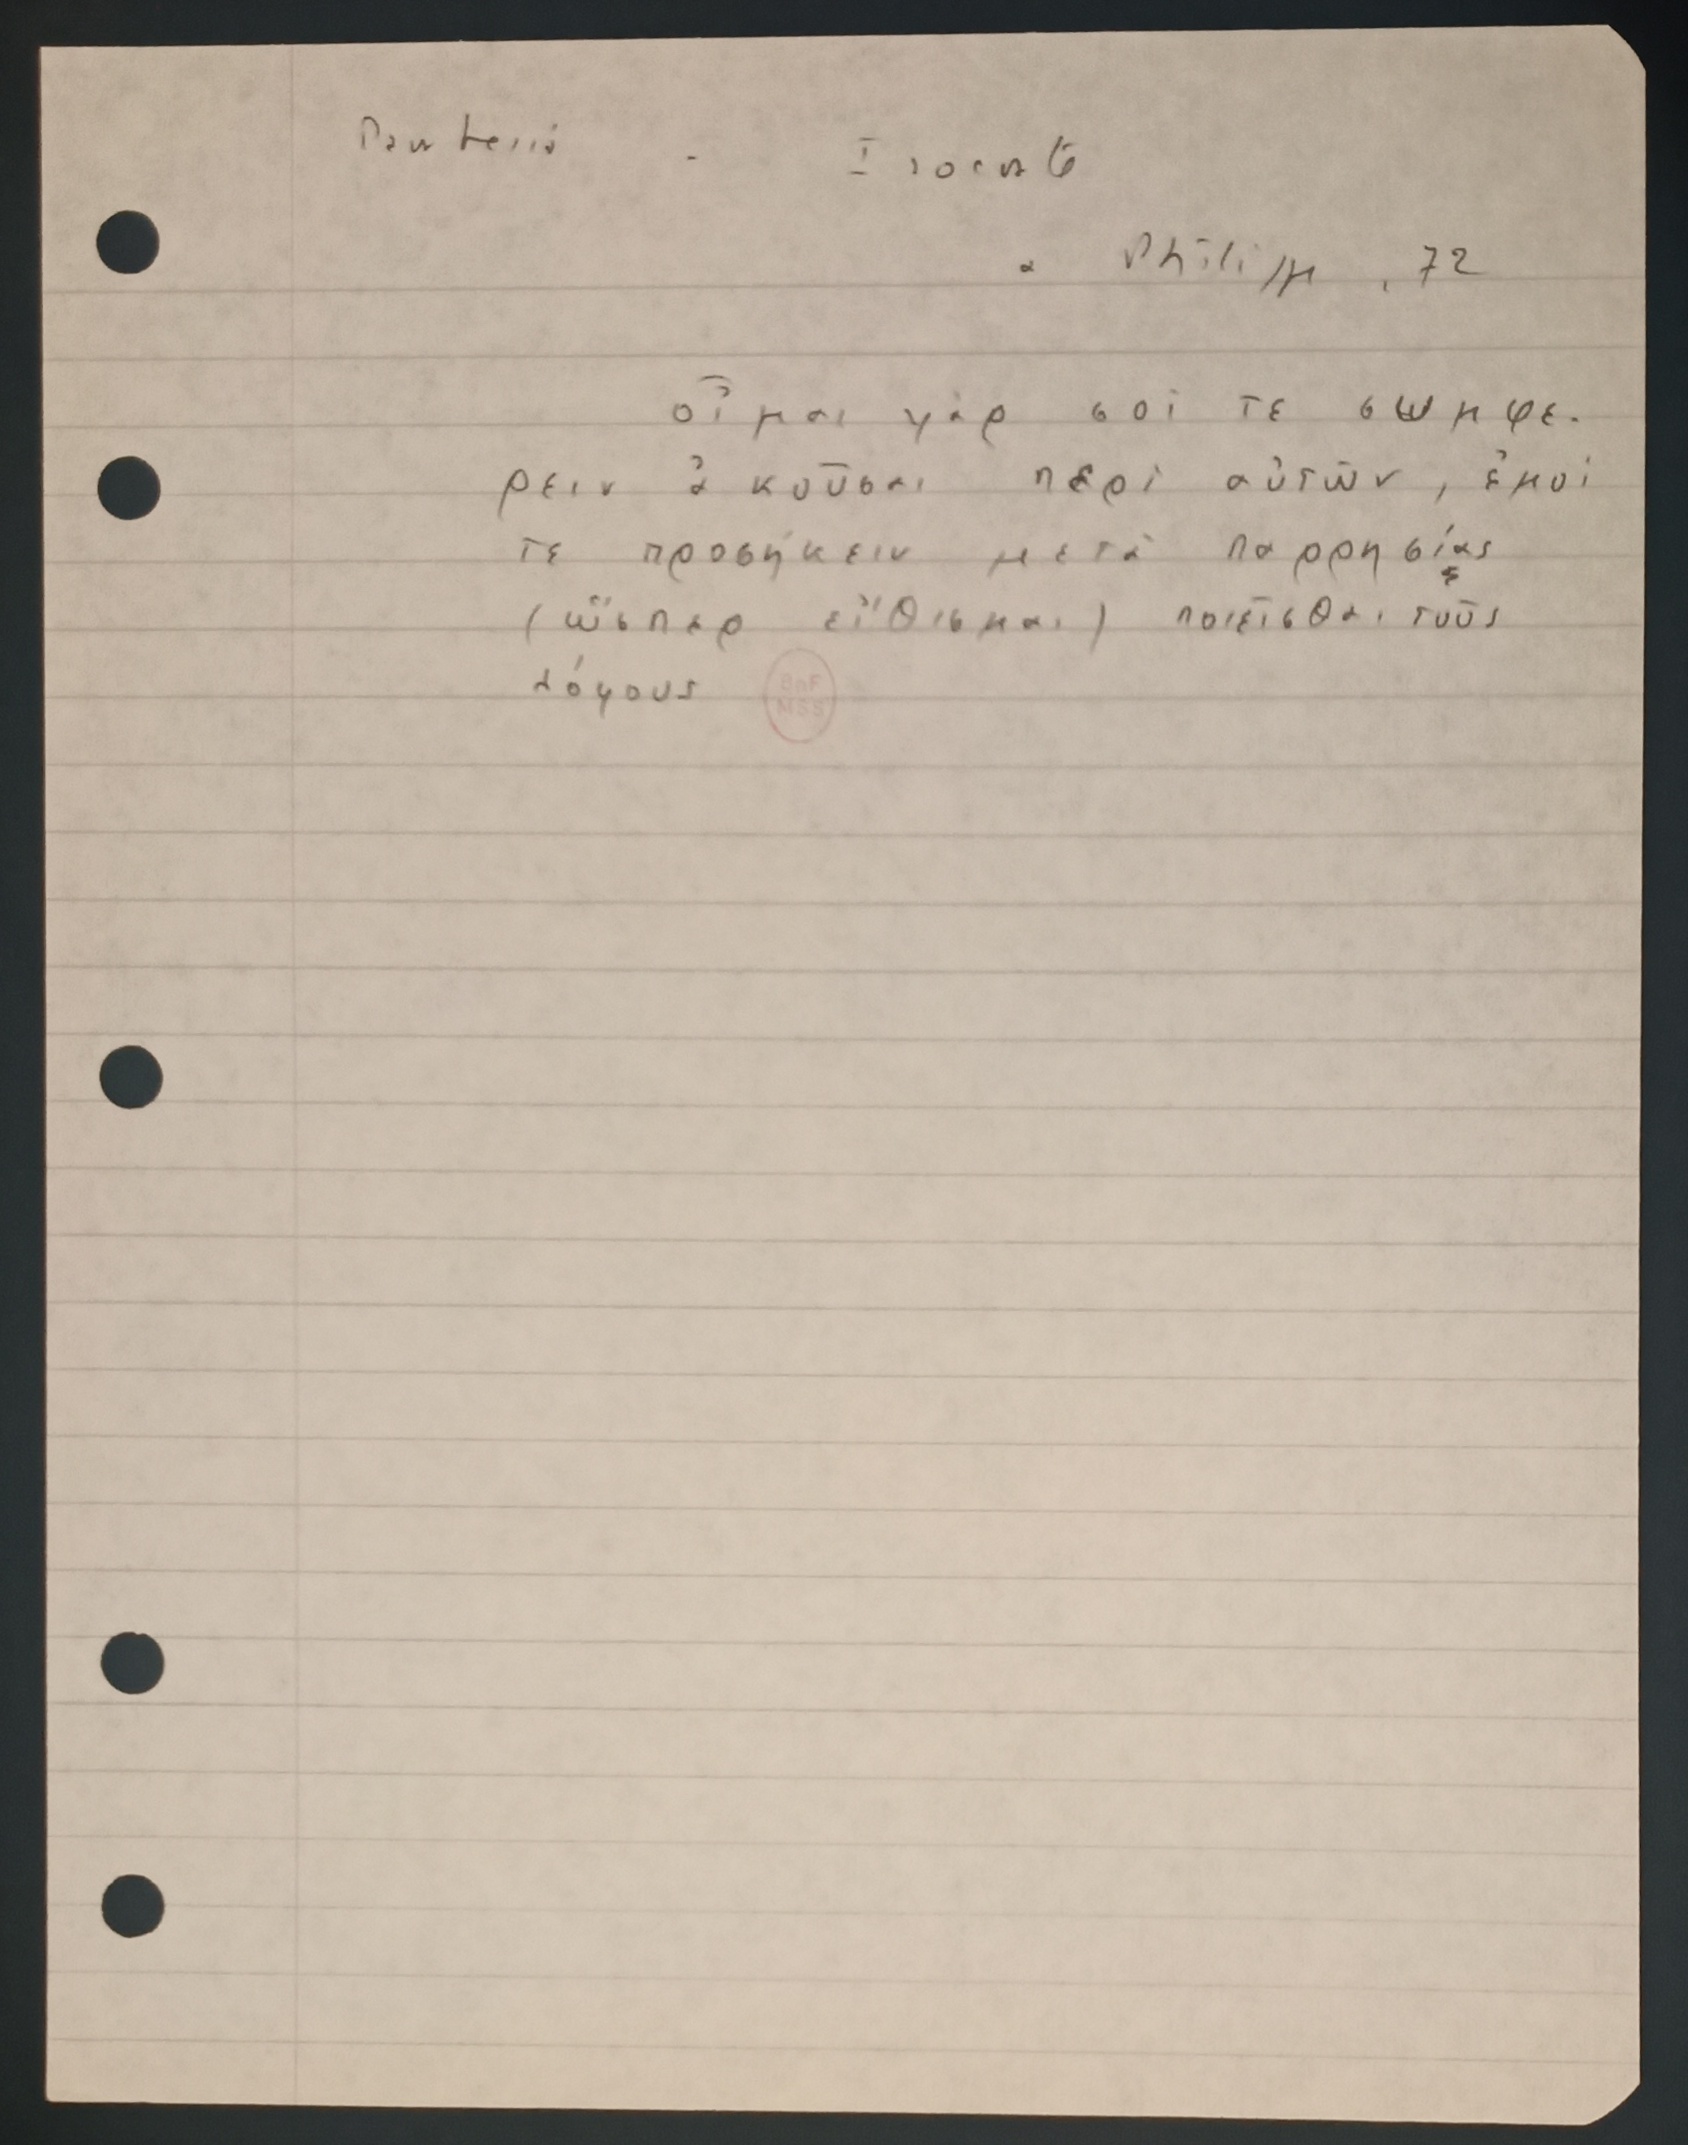 Parrhesia - Isocrate
a Philippe, 72
οἶμαι γὰρ σοί τε συμφέ-
ρειν ἀκοῦσαι περὶ αὐτῶν, ἐμοί
τε προσήκειν μετὰ παρρησίας
(ὥσπερ εἴθισμαι) ποιεῖσθαι τοὺς
λόγους
BnF
MSS